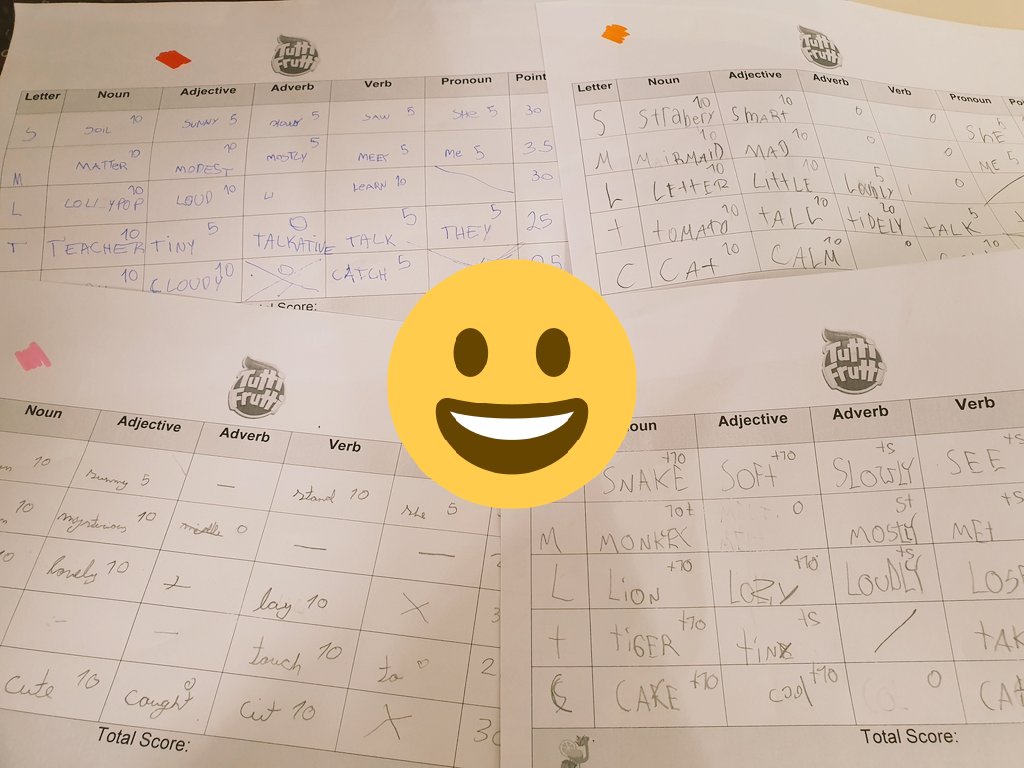 Tutti Frutti
Letter Noun Adjective Adverb Verb Pronoun Point
S SOIL 10 SUNNY 5 5 SAW 5 SHE 5 30
M MATTER 10 MODEST 10 MOSTLY 5 MEET 5 Me 5 35
L LOLLYPOP 10 LOUD 10 LEARN 10 30
T TEACHER 10 TINY 5 TALKATIVE 0 TALK 5 THEY 5 25
10 CLOUDY 10 0 CATCH 5
Score:
Tutti Frutti
Letter Noun Adjective Adverb Verb Pronoun
S Strabery 10 SMART 10 0 0 SHE
M MAIRMAID 10 MAD 10 0 0 ME 5
L LETTER 10 Little 10 Loudly 5 0
t tOMATO 10 tALL 10 tiDELY 10 tALK 5
C CAt 10 CALM 10 0
Tutti Frutti
Noun Adjective Adverb Verb
10 sunny 5 — stand 10 she 5
10 mysterious 10 middle 0 — —
10 lovely 10 lay 10
— — touch 10 to 0
cute 10 caught 0 cut 10
Total Score:
Tutti Frutti
Adjective Adverb Verb
SNAKE +10 SOFt +10 SLOWLY +5 SEE +5
M MONKEY 10+ 0 MOSTLY 5+ MEt +5
L LiON +10 LAZY +10 LOUDLY +5
t tiGER +10 tiNY +5
C CAKE +10 cool +10 0
Total Score: